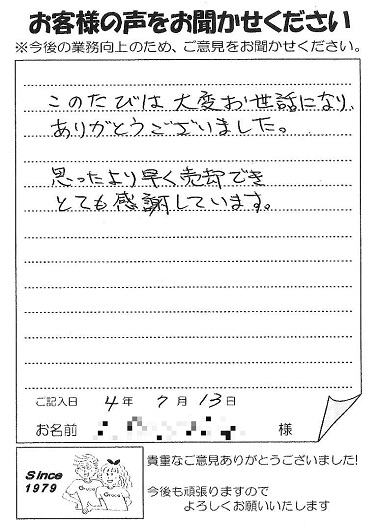 お客様の声をお聞かせください
※今後の業務向上のため、ご意見をお聞かせください。
このたびは大変お世話になり
ありがとうございました。
思ったより早く売却でき
とても感謝しています。
ご記入日 4年 7月 13日
お名前 様
Since
1979
貴重なご意見ありがとうございました!
今後も頑張りますので
よろしくお願いいたします